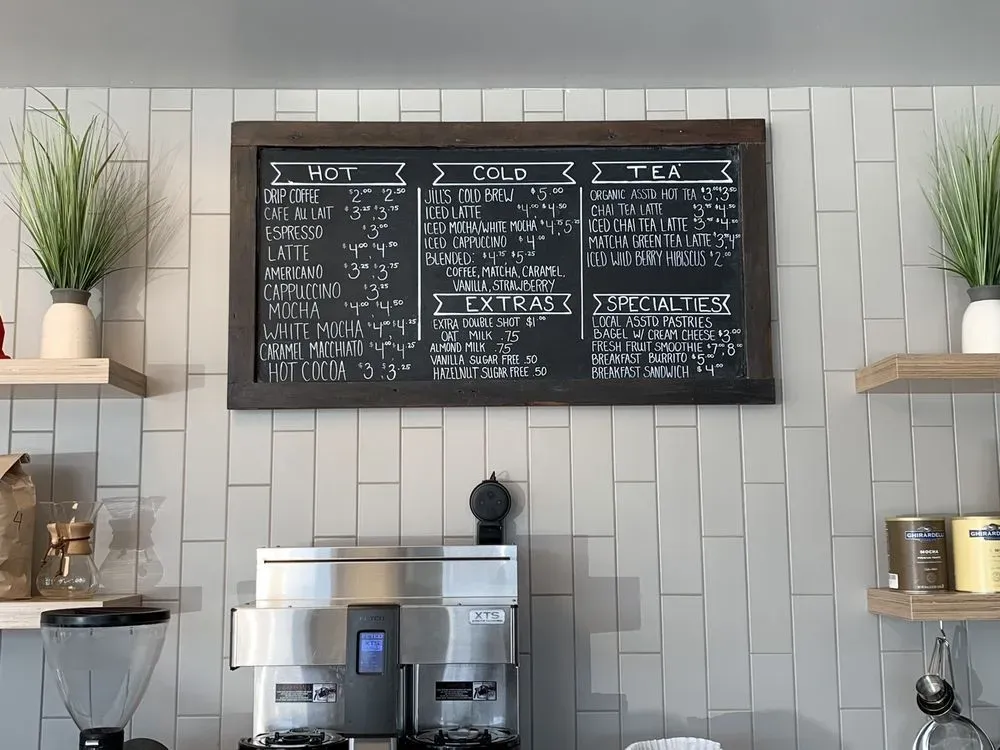 HOT
DRIP COFFEE $2.00 $2.50
CAFE AU LAIT $3.25 $3.75
ESPRESSO $3.00
LATTE $4.00 $4.50
AMERICANO $3.25 $3.75
CAPPUCCINO $3.25
MOCHA $4.00 $4.50
WHITE MOCHA $4.00 $4.25
CARAMEL MACCHIATO $4.00 $4.25
HOT COCOA $3. $3.25
COLD
JILL'S COLD BREW $5.00
ICED LATTE $4.00 $4.50
ICED MOCHA/WHITE MOCHA $4.75 5.25
ICED CAPPUCCINO $4.00
BLENDED: $4.75 $5.25
COFFEE, MATCHA, CARAMEL,
VANILLA, STRAWBERRY
EXTRAS
EXTRA DOUBLE SHOT $1.00
OAT MILK .75
ALMOND MILK .75
VANILLA SUGAR FREE .50
HAZELNUT SUGAR FREE .50
TEA
ORGANIC ASSTD HOT TEA $3.00 $3.50
CHAI TEA LATTE
ICED CHAI TEA LATTE
MATCHA GREEN TEA LATTE
ICED WILD BERRY HIBISCUS $2.00
SPECIALTIES
LOCAL ASSTD PASTRIES
BAGEL W/ CREAM CHEESE $3.00
FRESH FRUIT SMOOTHIE $7.00 8.00
BREAKFAST BURRITO $5.00
BREAKFAST SANDWICH $4.00
4
FETCO
FETCO
XTS
XTS
GHIRARDELLI
MOCHA
GHIRARD